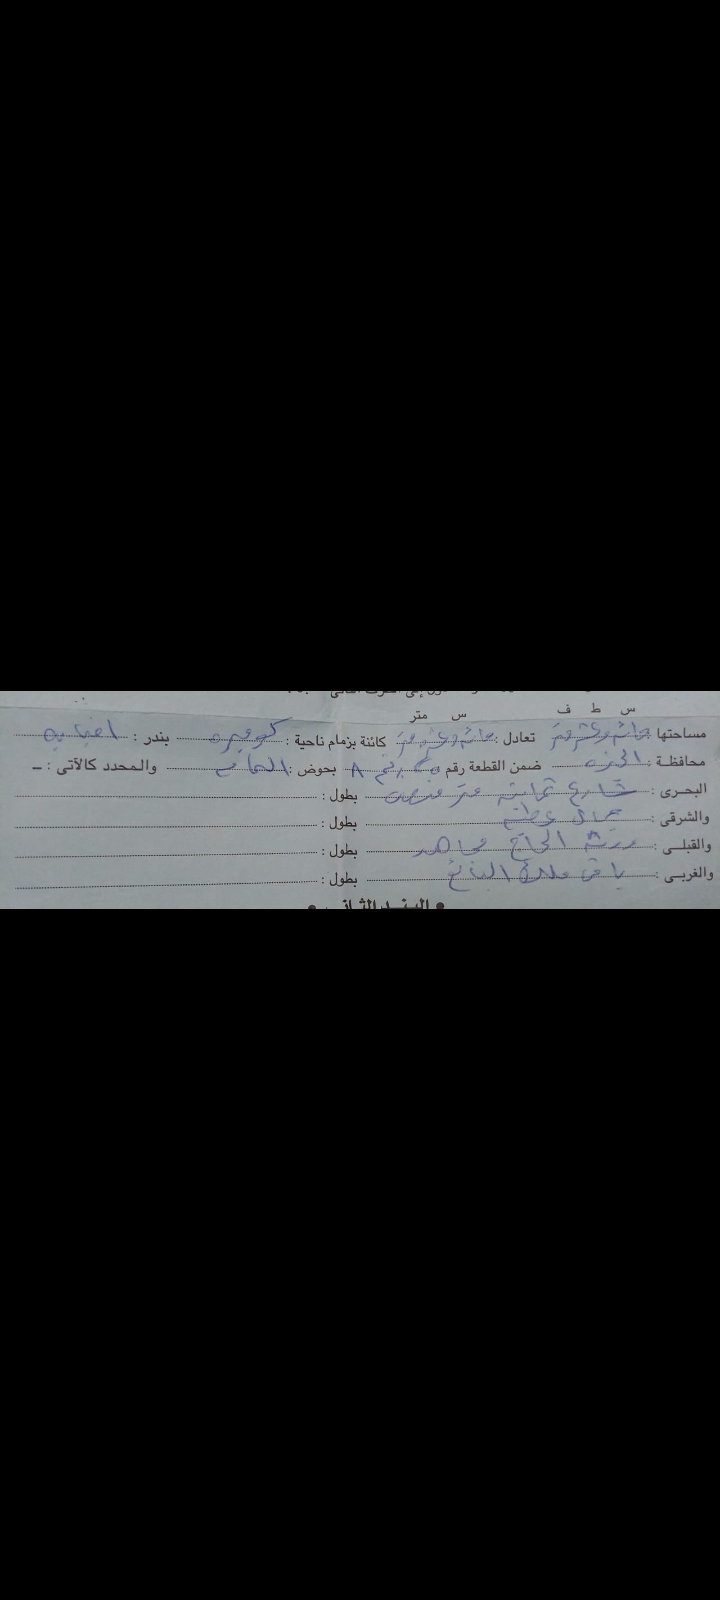 س ط ف س متر
مساحتها مائه وعشر متر تعادل : مائه وعشر متر كائنة بزمام ناحية : كومبره بندر :
محافظة : الجيزه ضمن القطعة رقم ٨ بحوض : والمحدد كالآتى : ـ
البحـرى : شارع ثمانيه متر بطول :
والشرقى : جمال عطيه بطول :
والقبلـى : ورثة الحاج مجاهد بطول :
والغربـى : باقى ملك البائع بطول :
• البنـد الثانى •